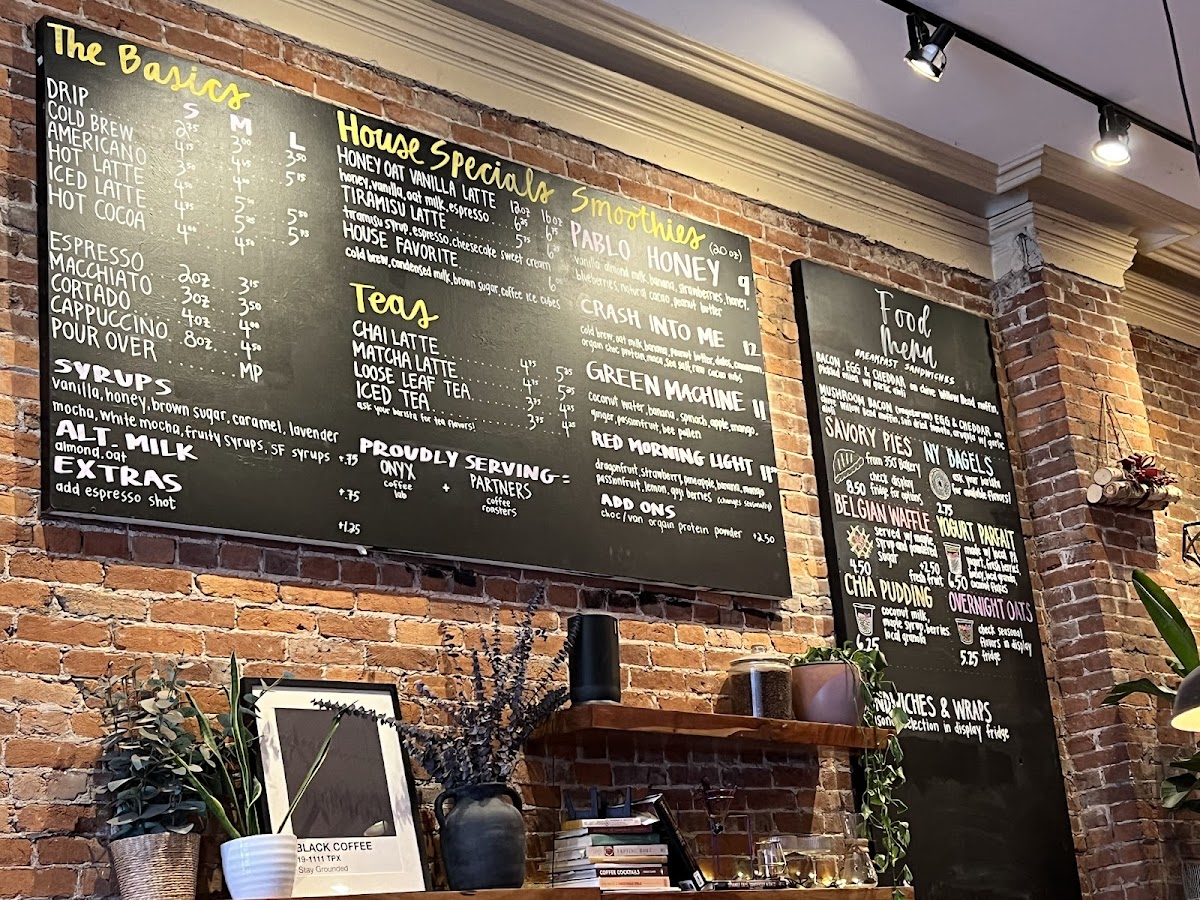 The Basics
S M L
DRIP 2.75 3.00 3.50
COLD BREW
AMERICANO
HOT LATTE
ICED LATTE
HOT COCOA
ESPRESSO 2oz
MACCHIATO 3oz 3.50
CORTADO 4oz 4.00
CAPPUCCINO 8oz 4.50
POUR OVER MP
SYRUPS
vanilla, honey, brown sugar, caramel, lavender
mocha, white mocha, fruity syrups, SF syrups +.75
ALT-MILK
almond, oat +.75
EXTRAS
add espresso shot +1.25
House Specials
12oz 16oz
HONEY OAT VANILLA LATTE
honey, vanilla, oat milk, espresso
TIRAMISU LATTE
tiramisu syrup, espresso, cheesecake sweet cream
HOUSE FAVORITE
cold brew, condensed milk, brown sugar, coffee ice cubes
Teas
CHAI LATTE
MATCHA LATTE
LOOSE LEAF TEA
ICED TEA
ask your barista for tea flavors!
PROUDLY SERVING=
ONYX + PARTNERS
coffee lab
coffee roasters
Smoothies (20 oz)
PABLO HONEY 9
vanilla almond milk, banana, strawberries, honey,
blueberries, natural cacao, peanut butter
CRASH INTO ME 12
cold brew, oat milk, banana, peanut butter, dates, cinnamon,
orgain choc protein, maca, sea salt, raw cacao nibs
GREEN MACHINE 11
coconut water, banana, spinach, apple, mango,
ginger, passionfruit, bee pollen
RED MORNING LIGHT
dragonfruit, strawberry, pineapple, banana, mango
passionfruit, lemon, goji berries (changes seasonally)
ADD ONS
choc/van orgain protein powder +2.50
Food
Menu
BREAKFAST SANDWICHES
BACON, EGG & CHEDDAR on
MUSHROOM BACON EGG & CHEDDAR on
SAVORY PIES
from 350 Bakery
check display
fridge for options
8.50
NY BAGELS
ask your barista
for available flavors!
2.75
BELGIAN WAFFLE
served w/ maple
syrup and powdered
sugar
4.50
+2.50
fresh fruit
YOGURT PARFAIT
6.50
coconut flakes
CHIA PUDDING
coconut milk,
maple syrup, berries
local granola
6.25
OVERNIGHT OATS
check seasonal
flavors in display
fridge
5.25
NDWICHES & WRAPS
selection in display fridge
BLACK COFFEE
19-1111 TPX
Stay Grounded
COFFEE COCKTAILS